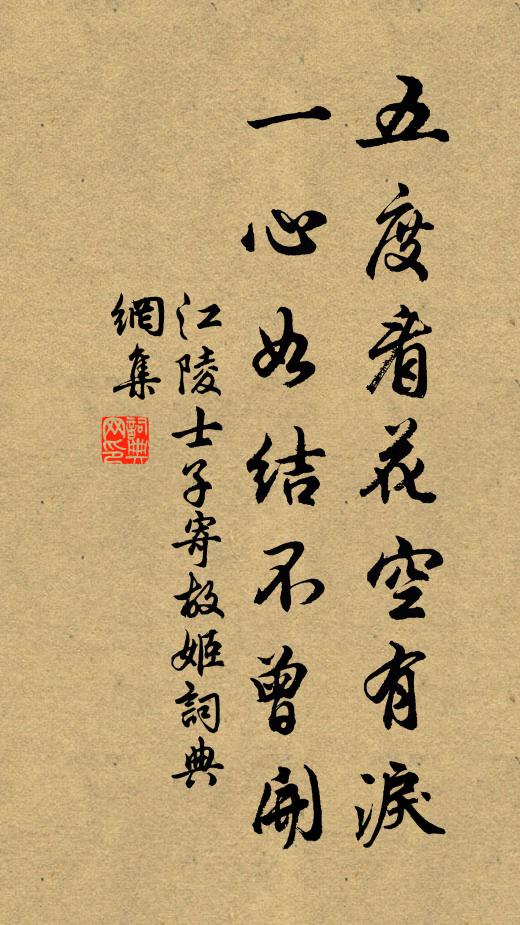 五度看花空有淚
一心如结不曾開
江陵士子寄故姬詞典
網集
詞典网印